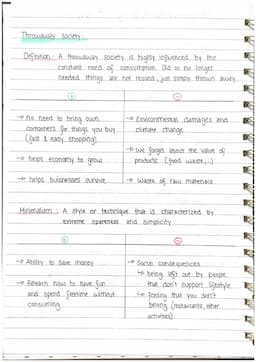 Throwaway society :
Definition : A throwaway society is highly influenced by the
constant need of consumption. Old or no longer
needed things are not reused, just simply thrown away.
+
−
→ No need to bring own
containers for things you buy
(fast & easy shopping)
→ helps economy to grow
→ helps businesses survive
→ Environmental damages and
climate change
→ We forget about the value of
products (food waste,..)
→ Waste of raw materials
Minimalism : A style or technique that is characterized by
extreme spareness and simplicity
+
−
→ Ability to save money
→ Relearn how to have fun
and spend freetime without
consuming
→ Social consequences
↳ being left out by people
that don't support lifestyle
↳ feeling that you don't
belong (restaurants, other
activities)